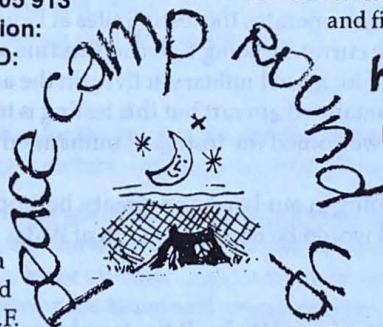 05 913
ion:
D:
and fi
Peace Camp Round
up
a
d
.F.